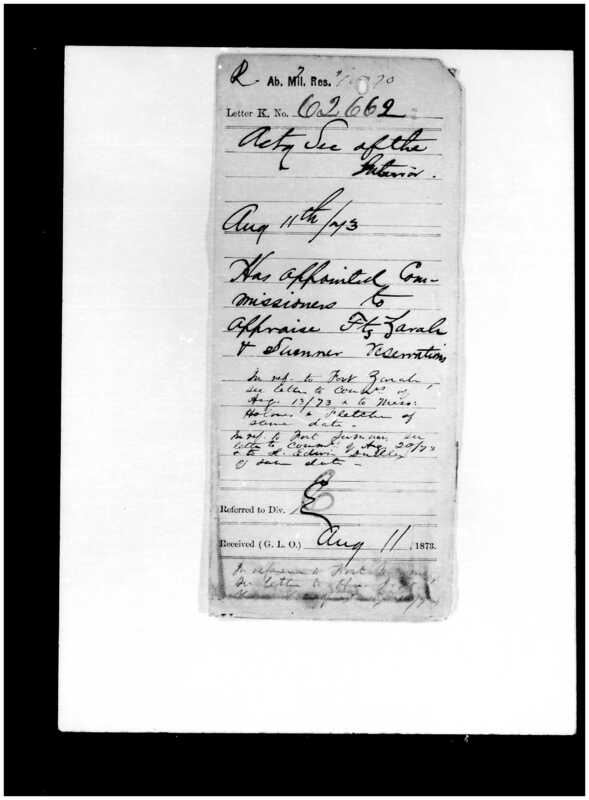 R Ab. Mil. Res.
Letter K. No. 62662
Actg Sec of the
Interior.
Aug 11th/73
Has appointed Com-
missioners to
appraise Fts Zarah
& Sumner reservations
In ref. to Fort Zarah,
see letter to Comrs. of
Aug. 13/73 & to Mess:
Holmes & Fletcher of
same date.
In ref. to Fort Sumner, see
letter to Comrs. of Aug 20/73
& to L. Edwin Dudley
of same date -
Referred to Div. E
Received (G. L. O.) Aug 11, 1873.
In reference to Fort
See letter to